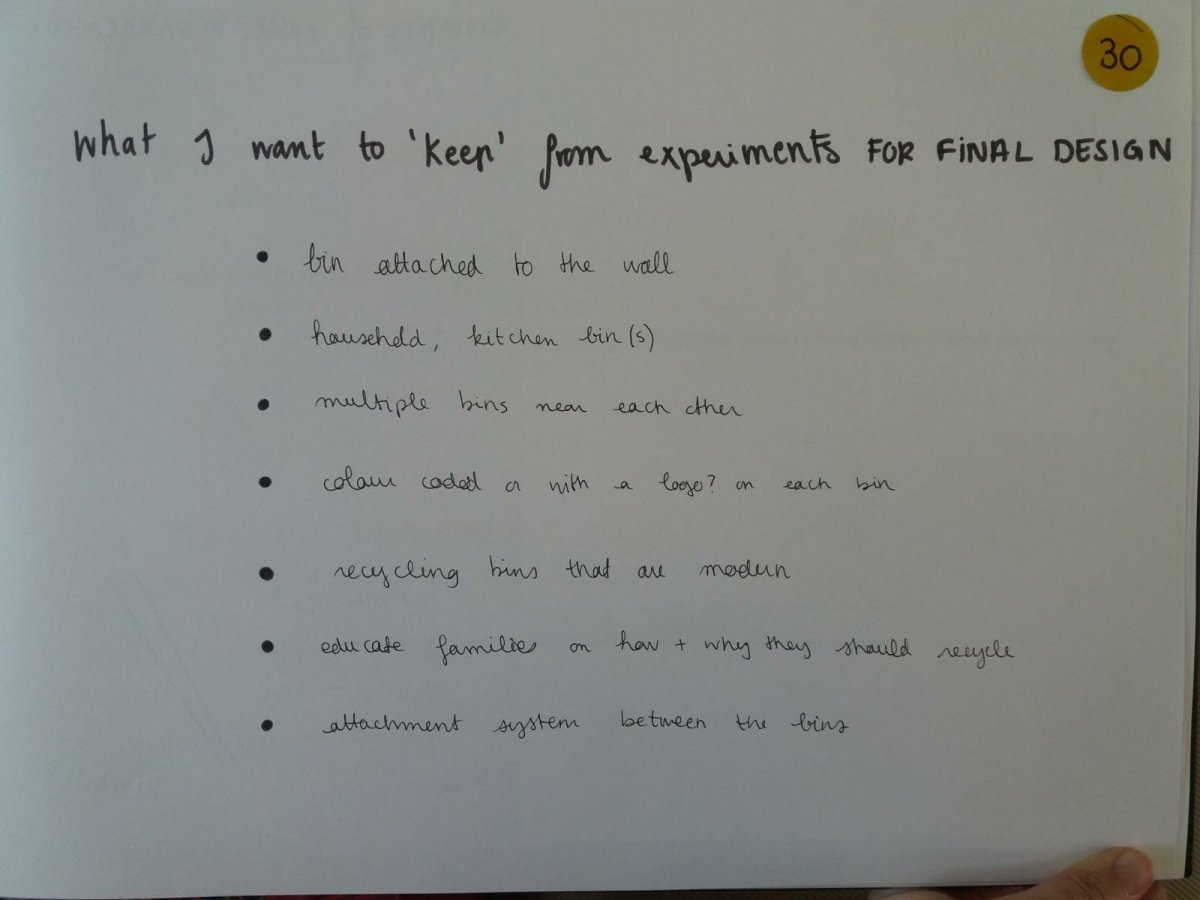 30
What I want to 'keep' from experiments FOR FINAL DESIGN
• bin attached to the wall
• household, kitchen bin(s)
• multiple bins near each other
• colour coded or with a logo? on each bin
• recycling bins that are modern
• educate families on how + why they should recycle
• attachment system between the bins